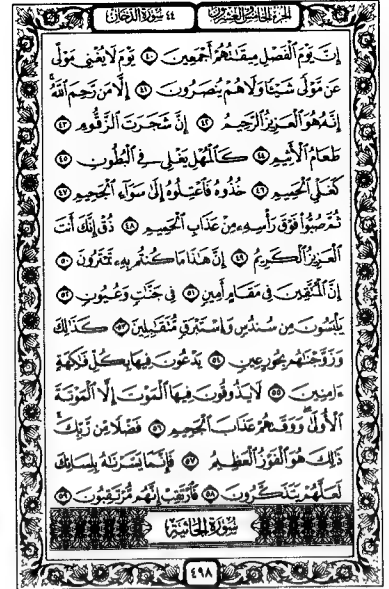 الجزء الخامس والعشرون ٤٤ سورة الدخان
إِنَّ يَوْمَ الْفَصْلِ مِيقَاتُهُمْ أَجْمَعِينَ ٤٠ يَوْمَ لَا يُغْنِي مَوْلًى
عَن مَّوْلًى شَيْئًا وَلَا هُمْ يُنصَرُونَ ٤١ إِلَّا مَن رَّحِمَ اللَّهُ ۚ
إِنَّهُ هُوَ الْعَزِيزُ الرَّحِيمُ ٤٢ إِنَّ شَجَرَتَ الزَّقُّومِ ٤٣
طَعَامُ الْأَثِيمِ ٤٤ كَالْمُهْلِ يَغْلِي فِي الْبُطُونِ ٤٥
كَغَلْيِ الْحَمِيمِ ٤٦ خُذُوهُ فَاعْتِلُوهُ إِلَىٰ سَوَاءِ الْجَحِيمِ ٤٧
ثُمَّ صُبُّوا فَوْقَ رَأْسِهِ مِنْ عَذَابِ الْحَمِيمِ ٤٨ ذُقْ إِنَّكَ أَنتَ
الْعَزِيزُ الْكَرِيمُ ٤٩ إِنَّ هَٰذَا مَا كُنتُم بِهِ تَمْتَرُونَ ٥٠
إِنَّ الْمُتَّقِينَ فِي مَقَامٍ أَمِينٍ ٥١ فِي جَنَّاتٍ وَعُيُونٍ ٥٢
يَلْبَسُونَ مِن سُندُسٍ وَإِسْتَبْرَقٍ مُّتَقَابِلِينَ ٥٣ كَذَٰلِكَ
وَزَوَّجْنَاهُم بِحُورٍ عِينٍ ٥٤ يَدْعُونَ فِيهَا بِكُلِّ فَاكِهَةٍ
ءَامِنِينَ ٥٥ لَا يَذُوقُونَ فِيهَا الْمَوْتَ إِلَّا الْمَوْتَةَ
الْأُولَىٰ ۖ وَوَقَاهُمْ عَذَابَ الْجَحِيمِ ٥٦ فَضْلًا مِّن رَّبِّكَ ۚ
ذَٰلِكَ هُوَ الْفَوْزُ الْعَظِيمُ ٥٧ فَإِنَّمَا يَسَّرْنَاهُ بِلِسَانِكَ
لَعَلَّهُمْ يَتَذَكَّرُونَ ٥٨ فَارْتَقِبْ إِنَّهُم مُّرْتَقِبُونَ ٥٩
سُورَةُ الْجَاثِيَةِ
٤٩٨